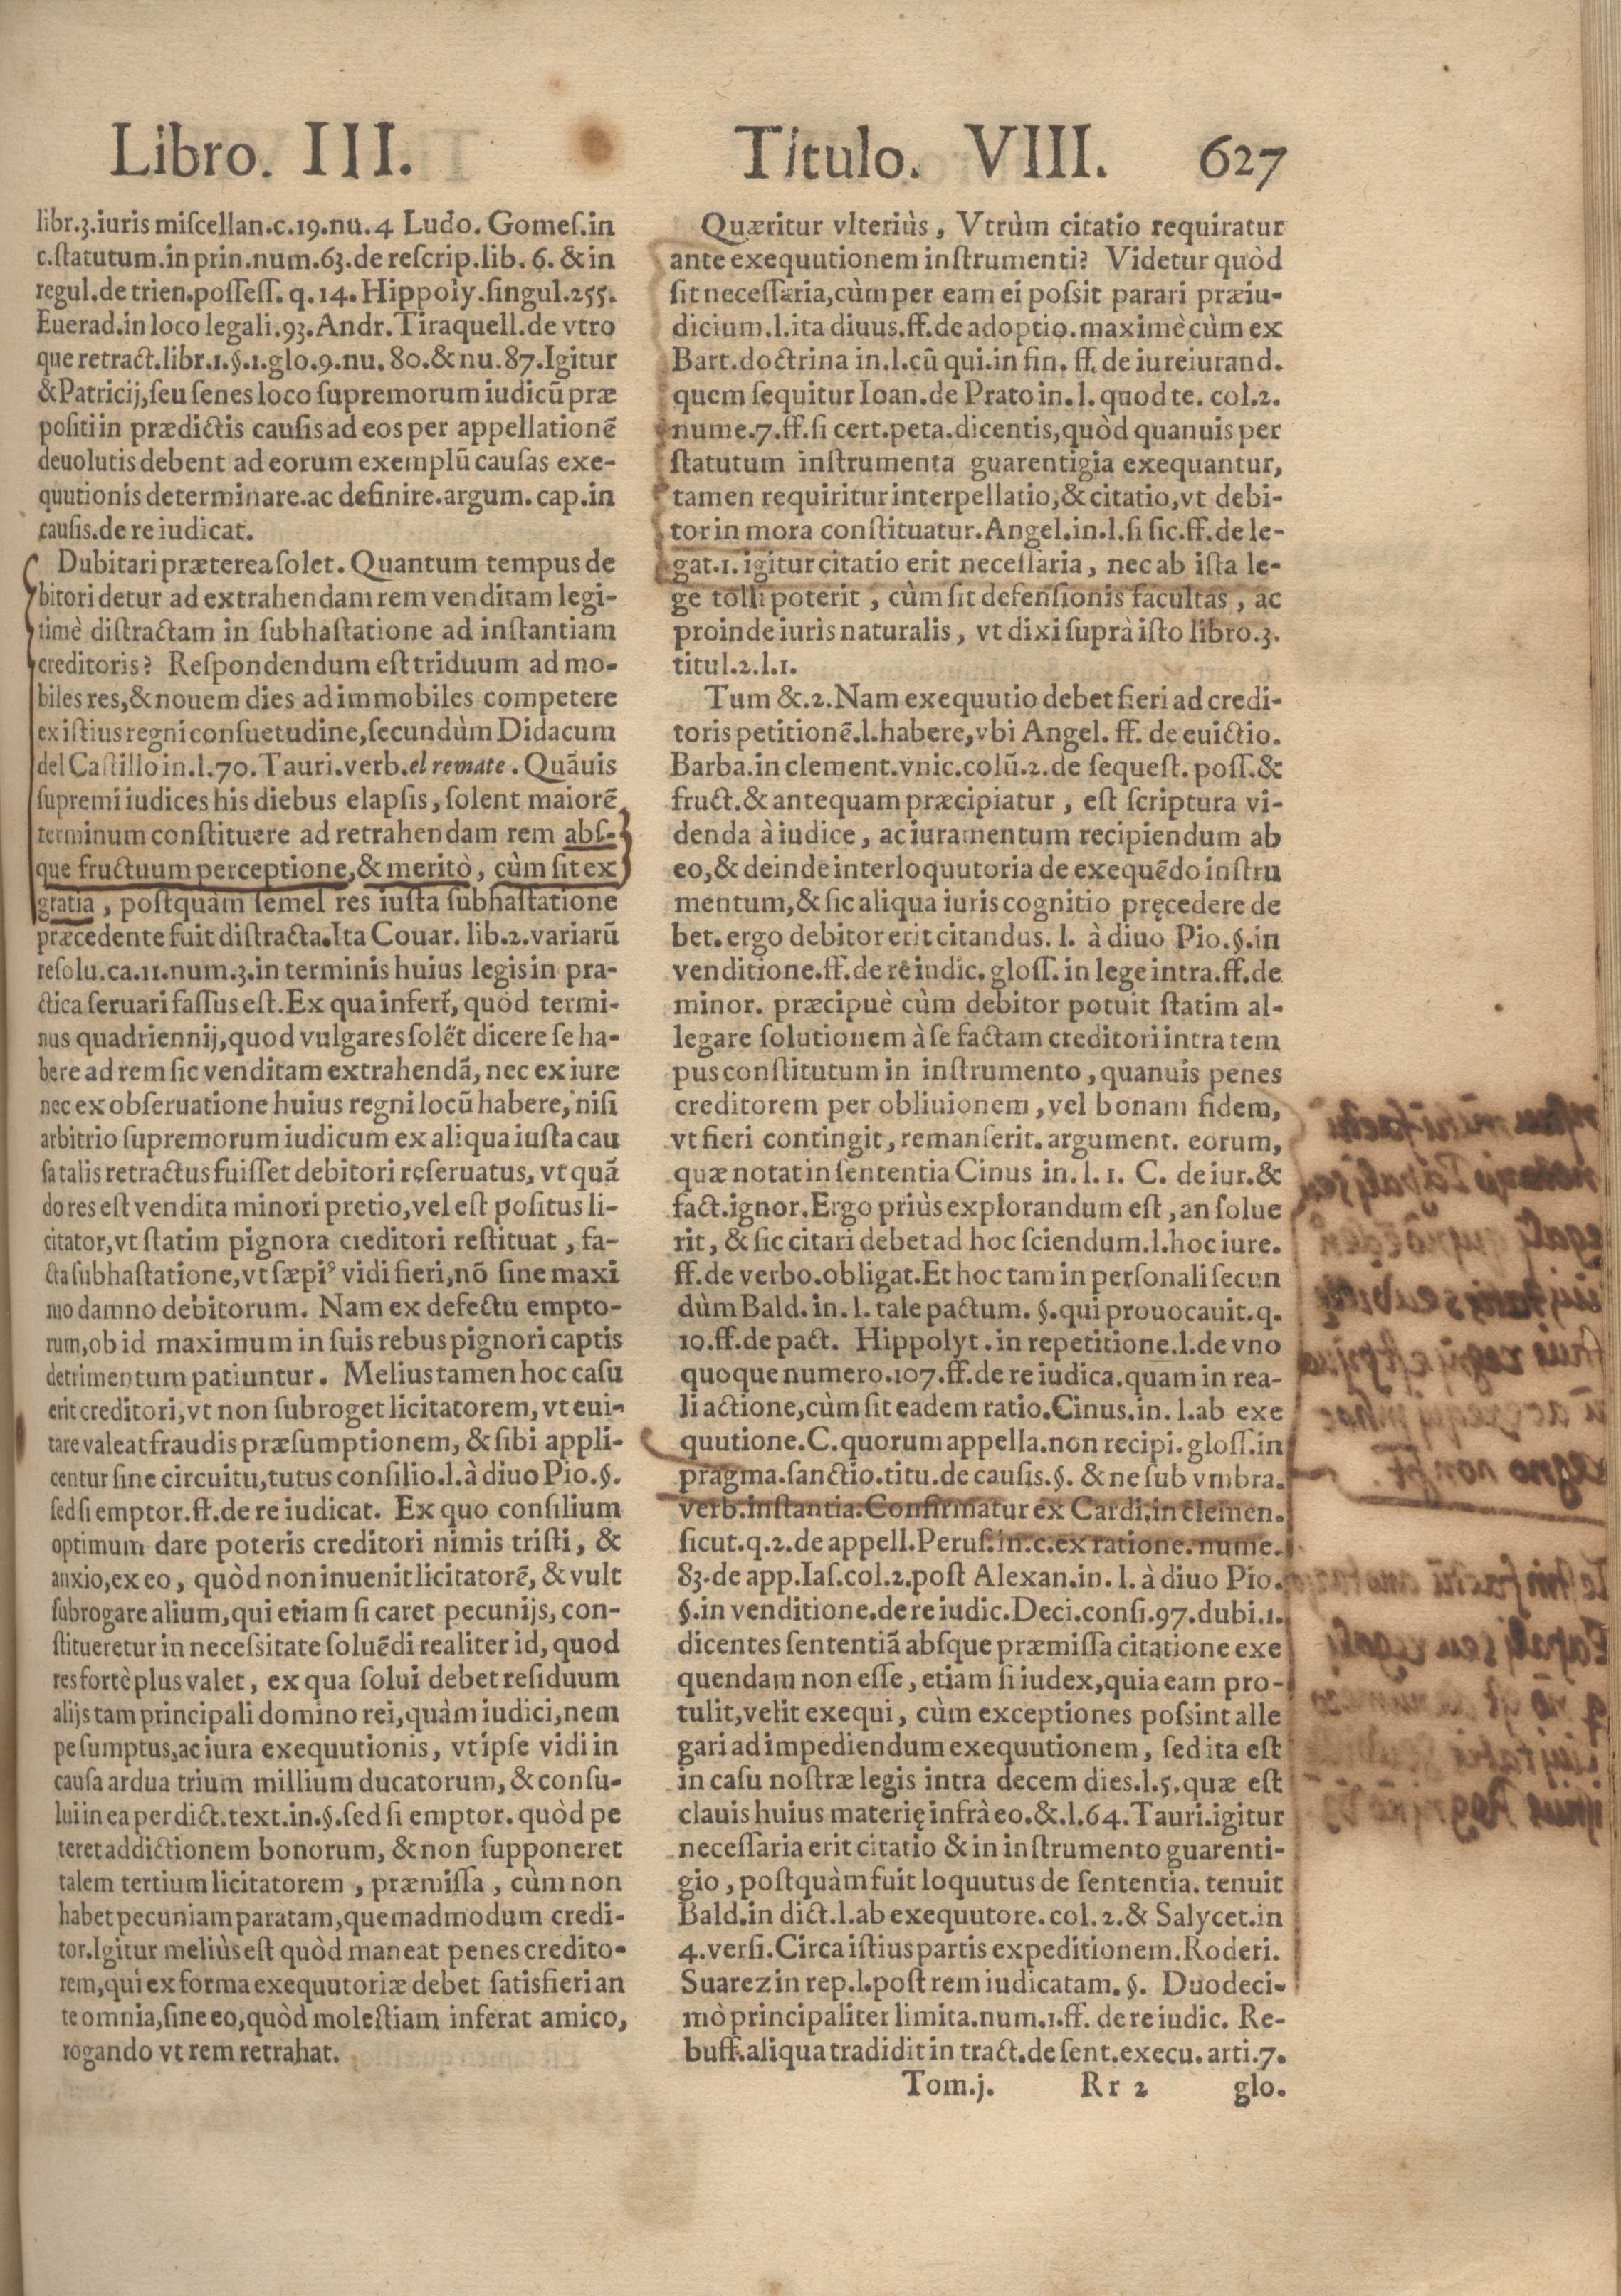 Libro. III. Titulo. VIII. 627
libr.3.iuris miſcellan.c.19.nu.4 Ludo. Gomeſ.in
c.ſtatutum.in prin.num.63.de reſcrip.lib. 6. & in
regul.de trien.poſſeſſ. q.14. Hippoly.ſingul.255.
Euerad.in loco legali.93.Andr.Tiraquell.de vtro
que retract.libr.1.§.1.glo.9.nu. 80.& nu.87.Igitur
& Patricij, ſeu ſenes loco ſupremorum iudicū præ
poſiti in prædictis cauſis ad eos per appellationē
deuolutis debent ad eorum exemplū cauſas exe-
quutionis determinare.ac definire.argum.cap.in
cauſis.de re iudicat.
Dubitari præterea ſolet. Quantum tempus de
bitori detur ad extrahendam rem venditam legi-
timè diſtractam in ſubhaſtatione ad inſtantiam
creditoris? Reſpondendum eſt triduum ad mo-
biles res, & nouem dies ad immobiles competere
ex iſtius regni conſuetudine, ſecundùm Didacum
del Caſtillo in.l.70.Tauri.verb.el remate. Quāuis
ſupremi iudices his diebus elapſis, ſolent maiorē
terminum conſtituere ad retrahendam rem abſ-
que fructuum perceptione, & meritò, cùm ſit ex
gratia, poſtquàm ſemel res iuſta ſubhaſtatione
præcedente fuit diſtracta.Ita Couar. lib.2.variarū
reſolu.ca.11.num.3.in terminis huius legis in pra-
ctica ſeruari faſſus eſt.Ex qua infert̃, quòd termi-
nus quadriennij, quod vulgares ſolēt dicere ſe ha-
bere ad rem ſic venditam extrahendā, nec ex iure
nec ex obſeruatione huius regni locū habere, niſi
arbitrio ſupremorum iudicum ex aliqua iuſta cau
ſa talis retractus fuiſſet debitori reſeruatus, vt quā
do res eſt vendita minori pretio, vel eſt poſitus li-
citator, vt ſtatim pignora creditori reſtituat, fa-
cta ſubhaſtatione, vt ſæpi⁹ vidi fieri, nō ſine maxi
mo damno debitorum. Nam ex defectu empto-
rum, ob id maximum in ſuis rebus pignori captis
detrimentum patiuntur. Melius tamen hoc caſu
erit creditori, vt non ſubroget licitatorem, vt eui-
tare valeat fraudis præſumptionem, & ſibi appli-
centur ſine circuitu, tutus conſilio.l.à diuo Pio.§.
ſed ſi emptor.ff.de re iudicat. Ex quo conſilium
optimum dare poteris creditori nimis triſti, &
anxio, ex eo, quòd non inuenit licitatorē, & vult
ſubrogare alium, qui etiam ſi caret pecunijs, con-
ſtitueretur in neceſsitate ſoluēdi realiter id, quod
res fortè plus valet, ex qua ſolui debet reſiduum
alijs tam principali domino rei, quàm iudici, nem
pe ſumptus, ac iura exequutionis, vt ipſe vidi in
cauſa ardua trium millium ducatorum, & conſu-
lui in ea per dict.text.in.§.ſed ſi emptor. quòd pe
teret addictionem bonorum, & non ſupponeret
talem tertium licitatorem, præmiſſa, cùm non
habet pecuniam paratam, quemadmodum credi-
tor.Igitur meliùs eſt quòd maneat penes credito-
rem, qui ex forma exequutoriæ debet ſatisfieri an
te omnia, ſine eo, quòd moleſtiam inferat amico,
rogando vt rem retrahat.
Quæritur vlteriùs, Vtrùm citatio requiratur
ante exequutionem inſtrumenti? Videtur quòd
ſit neceſſaria, cùm per eam ei poſsit parari præiu-
dicium.l.ita diuus.ff.de adoptio.maximè cùm ex
Bart.doctrina in.l.cū qui.in fin. ff.de iureiurand.
quem ſequitur Ioan.de Prato in.l.quod te. col.2.
nume.7.ff.ſi cert.peta.dicentis, quòd quanuis per
ſtatutum inſtrumenta guarentigia exequantur,
tamen requiritur interpellatio, & citatio, vt debi-
tor in mora conſtituatur. Angel.in.l.ſi ſic.ff.de le-
gat.1.igitur citatio erit neceſſaria, nec ab iſta le-
ge tolli poterit, cùm ſit defenſionis facultas, ac
proinde iuris naturalis, vt dixi ſuprà iſto libro.3.
titul.2.l.1.
Tum &.2.Nam exequutio debet fieri ad credi-
toris petitionē.l.habere, vbi Angel. ff. de euictio.
Barba.in clement.vnic.colū.2.de ſequeſt.poſſ.&
fruct.& antequam præcipiatur, eſt ſcriptura vi-
denda à iudice, ac iuramentum recipiendum ab
eo, & deinde interloquutoria de exequēdo inſtru
mentum, & ſic aliqua iuris cognitio pręcedere de
bet.ergo debitor erit citandus. l. à diuo Pio.§.in
venditione.ff.de re iudic.gloſſ.in lege intra.ff.de
minor. præcipuè cùm debitor potuit ſtatim al-
legare ſolutionem à ſe factam creditori intra tem
pus conſtitutum in inſtrumento, quanuis penes
creditorem per obliuionem, vel bonam fidem,
vt fieri contingit, remanſerit. argument. eorum,
quæ notat in ſententia Cinus in. l. 1. C. de iur.&
fact.ignor.Ergo priùs explorandum eſt, an ſolue
rit, & ſic citari debet ad hoc ſciendum.l.hoc iure.
ff.de verbo.obligat.Et hoc tam in perſonali ſecun
dùm Bald. in. l. tale pactum. §.qui prouocauit.q.
10.ff.de pact. Hippolyt.in repetitione.l.de vno
quoque numero.107.ff.de re iudica.quam in rea-
li actione, cùm ſit eadem ratio.Cinus.in. l.ab exe
quutione.C.quorum appella.non recipi.gloſſ.in
pragma.ſanctio.titu.de cauſis.§. & ne ſub vmbra.
verb.inſtantia.Confirmatur ex Cardi.in clemen.
ſicut.q.2.de appell.Peruſ.in.c.ex ratione.nume.
83.de app.Iaſ.col.2.poſt Alexan.in. l. à diuo Pio.
§.in venditione.de re iudic.Deci.conſi.97.dubi.1.
dicentes ſententiā abſque præmiſſa citatione exe
quendam non eſſe, etiam ſi iudex, quia eam pro-
tulit, velit exequi, cùm exceptiones poſsint alle
gari ad impediendum exequutionem, ſed ita eſt
in caſu noſtræ legis intra decem dies.l.5.quæ eſt
clauis huius materię infrà eo.&.l.64.Tauri.igitur
neceſſaria erit citatio & in inſtrumento guarenti-
gio, poſtquàm fuit loquutus de ſententia. tenuit
Bald.in dict.l.ab exequutore.col.2.& Salycet.in
4.verſi.Circa iſtius partis expeditionem.Roderi.
Suarez in rep.l.poſt rem iudicatam.§. Duodeci-
mò principaliter limita.num.1.ff. de re iudic. Re-
buff.aliqua tradidit in tract.de ſent.execu. arti.7.
Tom.j. Rr 2 glo.